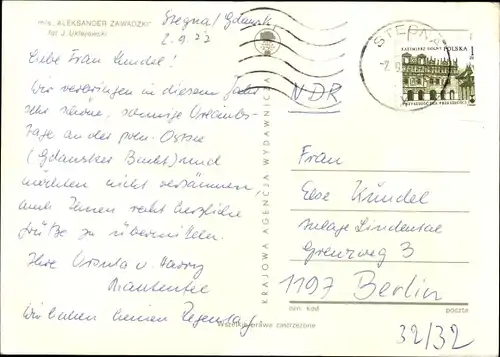 m/s. „ALEKSANDER ZAWADZKI"
fot. J. Uklejewski
Stegna/Gdański
2.9.77
Liebe Frau Kündel!
Wir verbringen in diesem Jahr
sehr schöne, sonnige Urlaubs-
tage an der poln. Ostsee
(Gdansker Bucht) und
möchten nicht versäumen,
auch Ihnen recht herzliche
Grüße zu übermitteln.
Ihre Ursula u. Harry
Wir haben keinen Regentag!
KRAJOWA AGENCJA WYDAWNICZA
Wszelkie prawa zastrzeżone
STEGNA
KAZIMIERZ DOLNY POLSKA
NDR
Frau
Else Kündel
Anlage Lindental
Grenzweg 3
1197 Berlin
ozn. kod
poczta
32/32